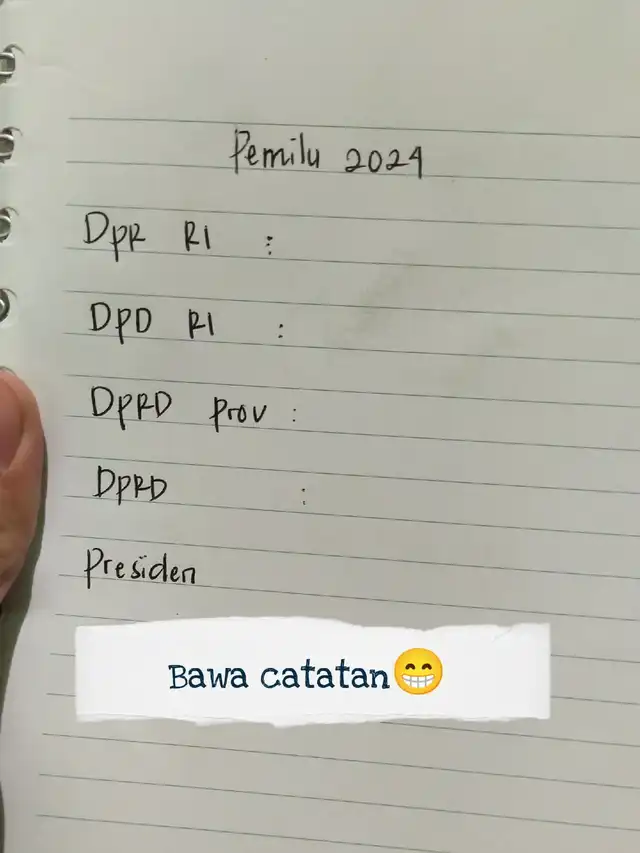 Pemilu 2024
DPR RI :
DPD RI :
DPRD Prov :
DPRD :
Presiden
Bawa catatan😁